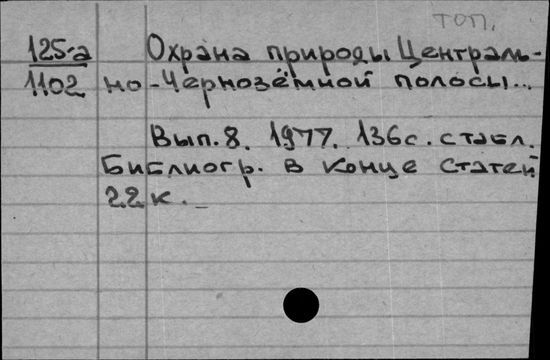 топ.
125-а Охрана природы Централь-
1102 но-Чернозёмной полосы...
Вып. 8. 1977. 136с. с табл.
Библиогр. в конце статей
22к.